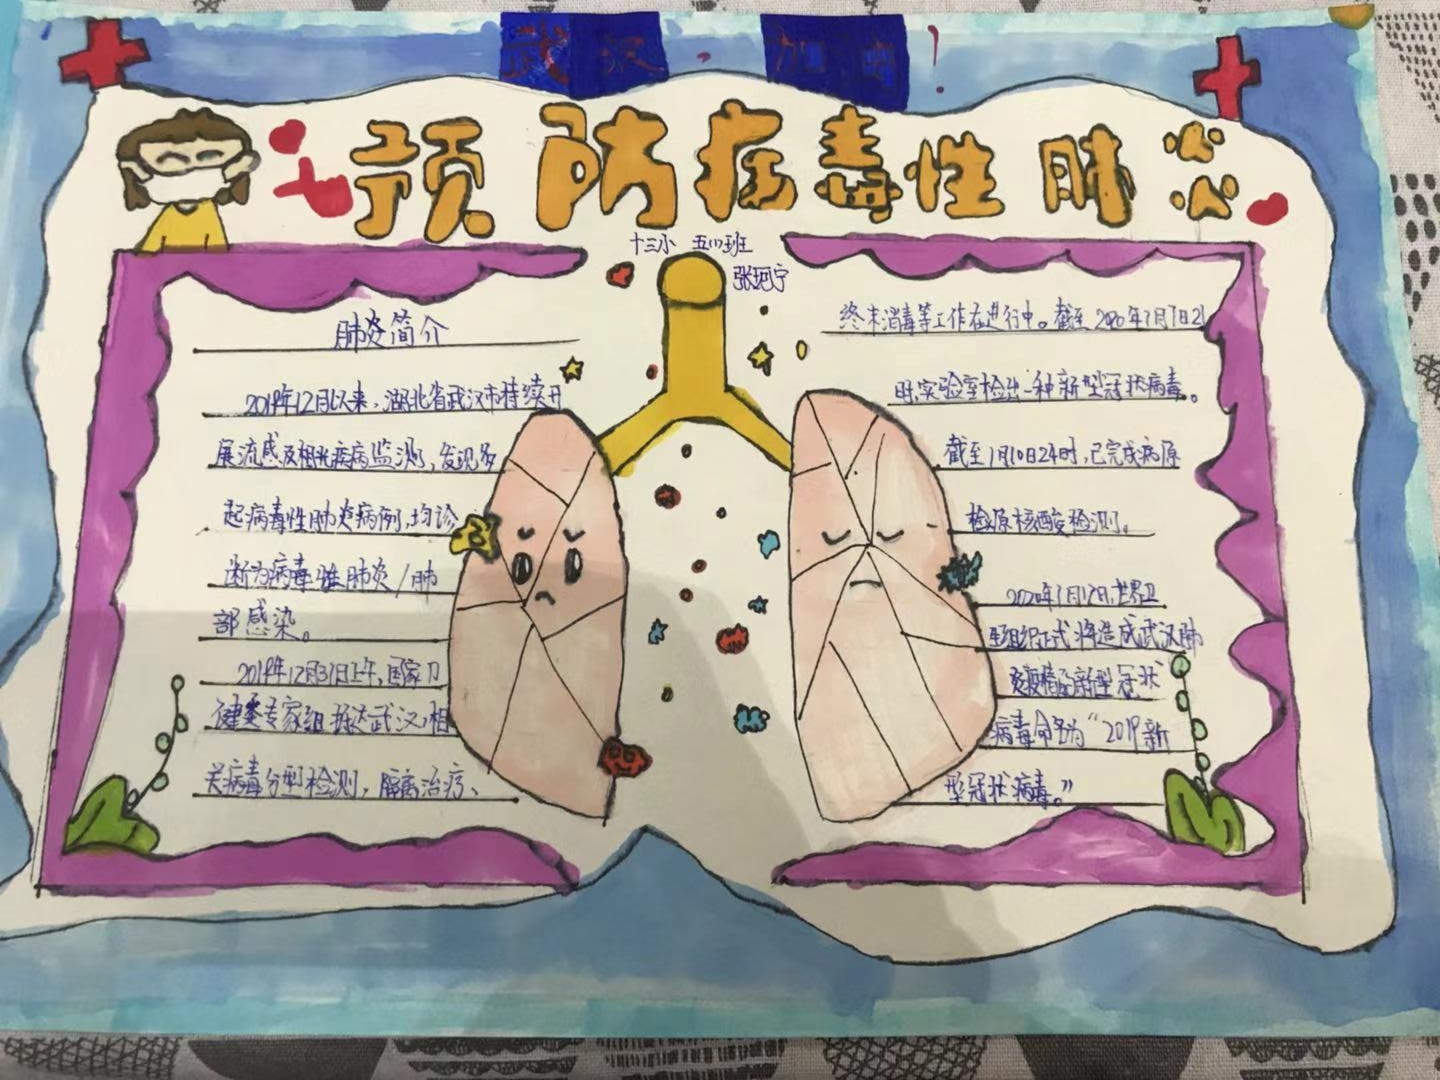 武汉,加油!
预防病毒性肺炎
十三小 五(1)班
张珂宁
肺炎简介
2019年12月以来,湖北省武汉市持续开
展流感及相关疾病监测,发现多
起病毒性肺炎病例,均诊
断为病毒性肺炎/肺
部感染。
2019年12月31日上午,国家卫
健委专家组抵达武汉,相
关病毒分型检测,隔离治疗、
终末消毒等工作在进行中。截至2020年1月7日21
时,实验室检出一种新型冠状病毒。
截至1月10日24时,已完成病原
检原核酸检测。
2020年1月12日,世界卫
生组织正式将造成武汉肺
炎疫情的新型冠状
病毒命名为“2019新
型冠状病毒。”